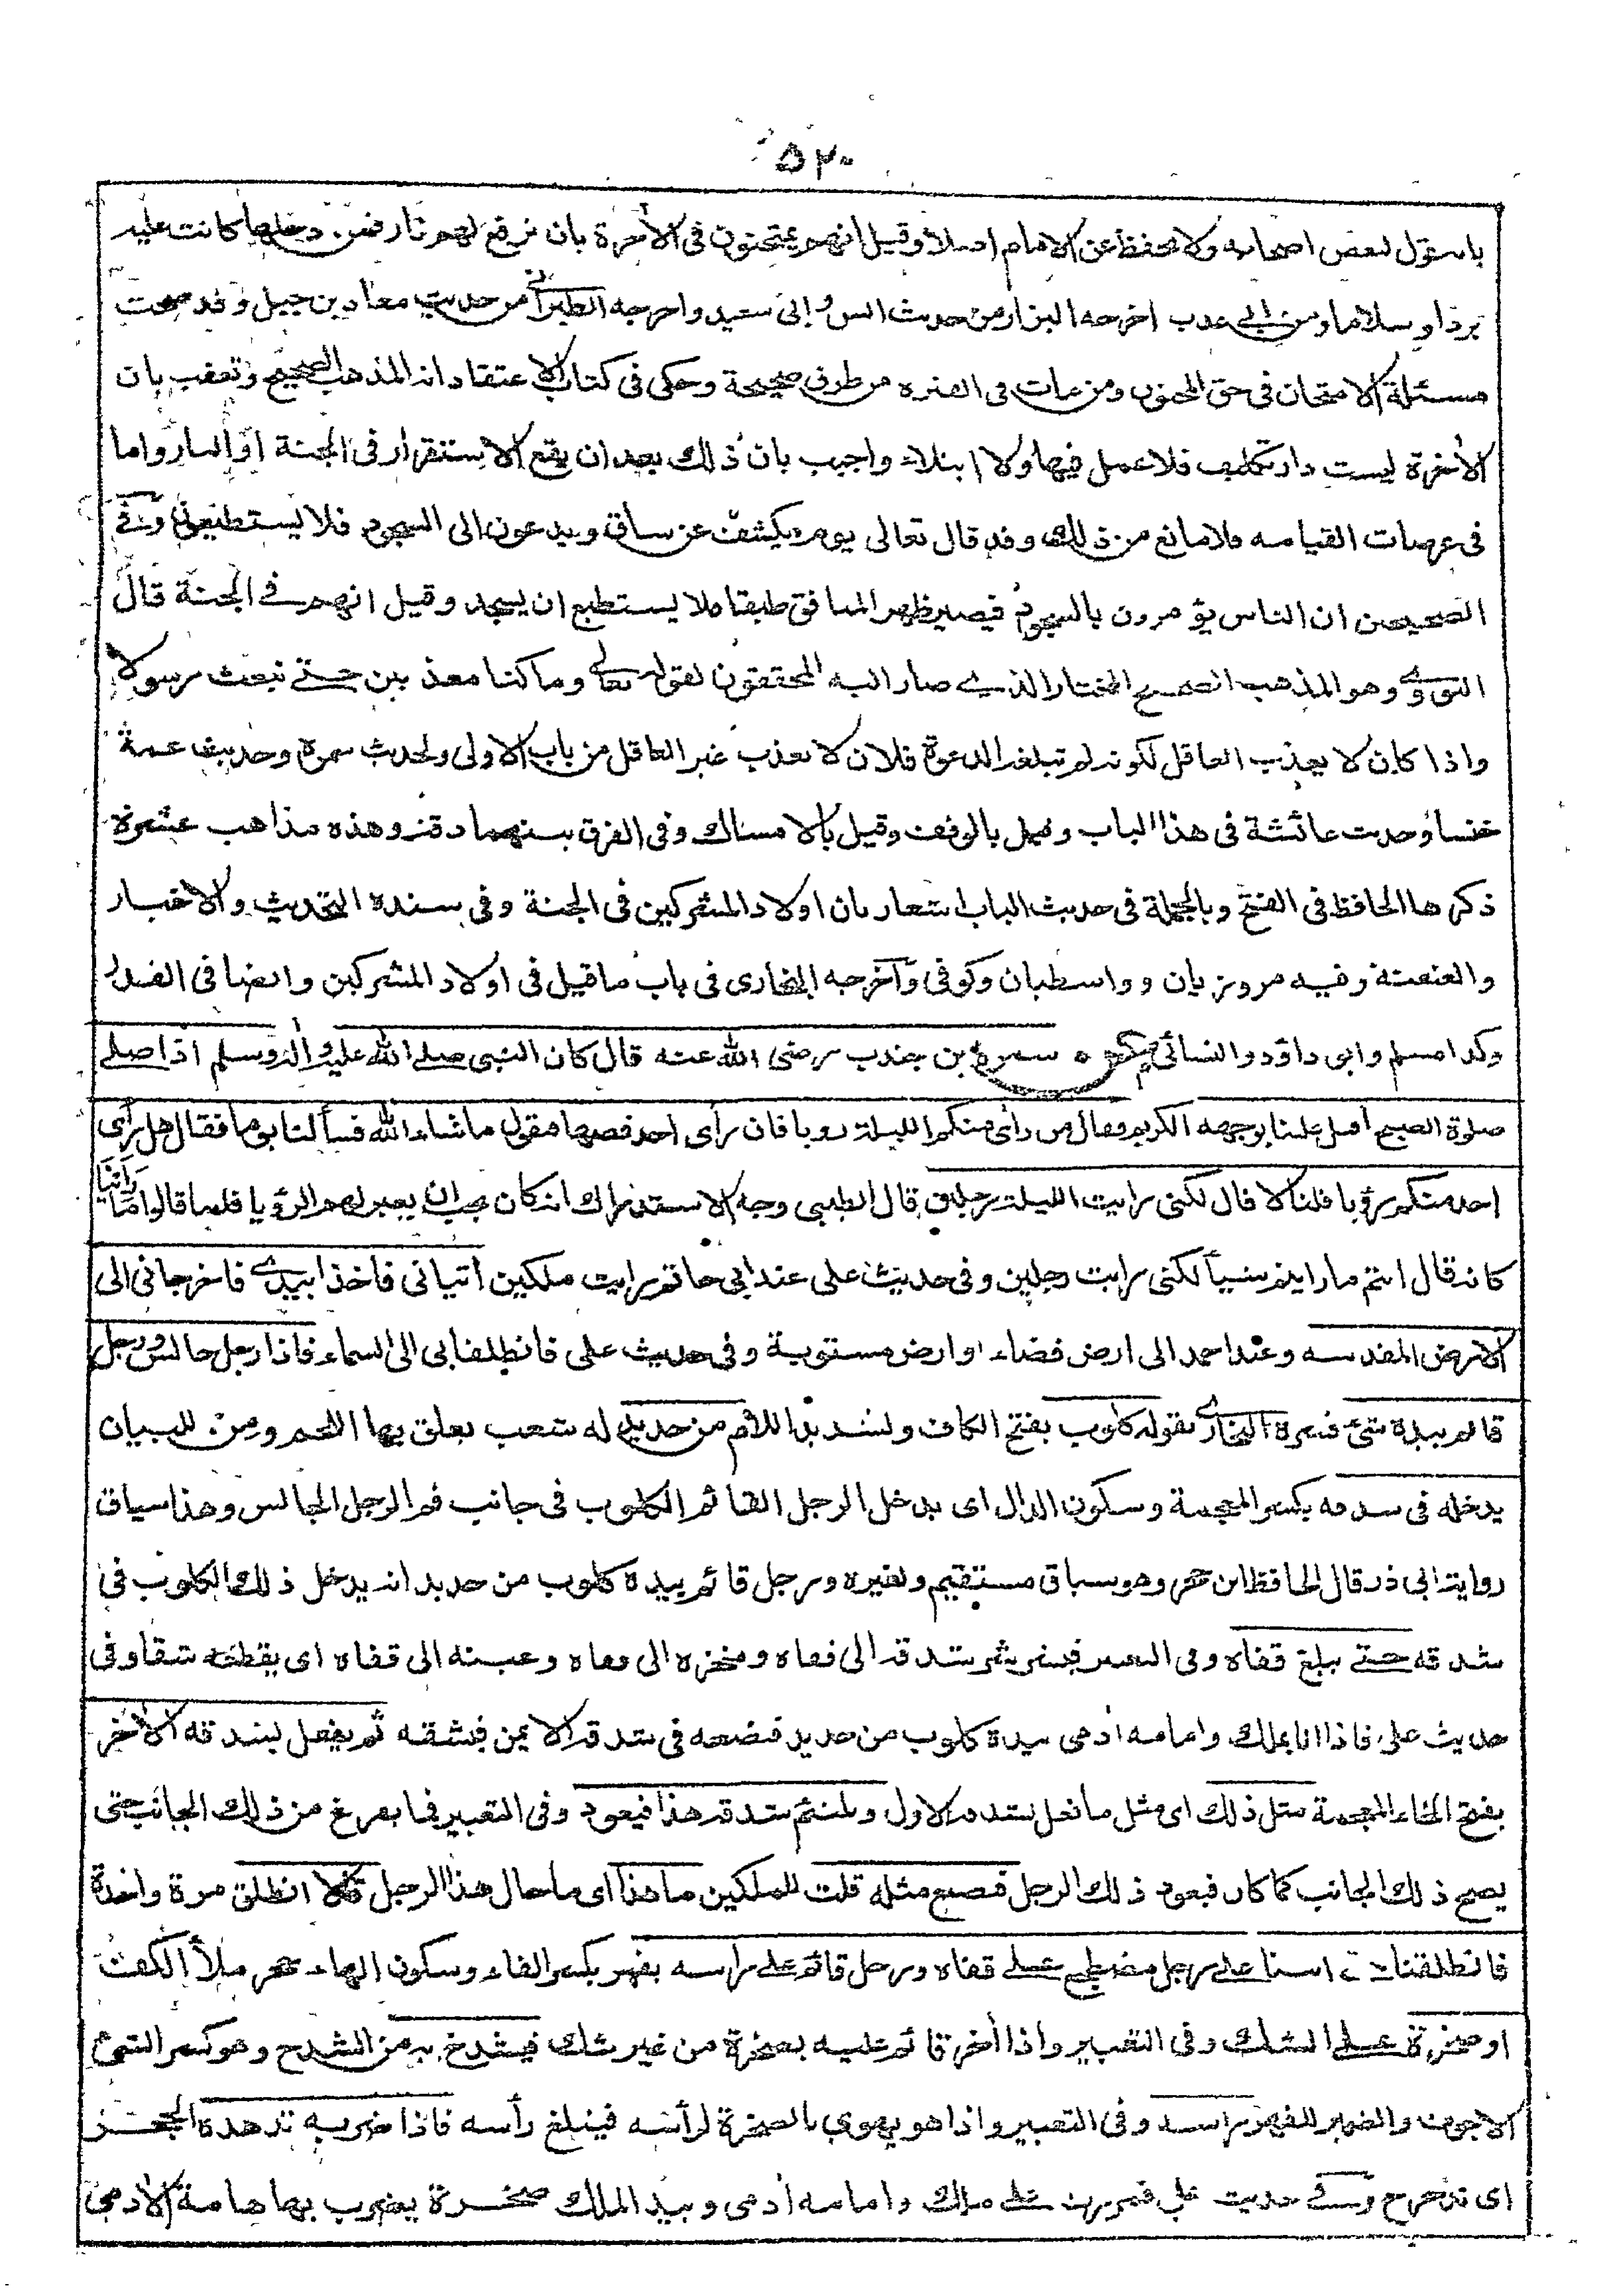 ٥٢٠
بانه قول لبعض اصحابه ولا يحفظ عن الامام اصلا وقيل انهم يمتحنون فى الأخرة بان ترفع لهم نار فمن دخلها كانت عليه
بردا وسلاما ومن ابى عذب اخرجه البزار من حديث انس وابى سعيد واخرجه الطبرانى من حديث معاذ بن جبل وقد صحت
مسئلة الامتحان فى حق المجنون ومن مات فى الفترة من طرق صحيحة وحكى فى كتاب الاعتقاد انه المذهب الصحيح وتعقب بان
الأخرة ليست دار تكليف فلا عمل فيها ولا ابتلاء واجيب بان ذلك بعد ان يقع الاستقرار فى الجنة او النار واما
فى عرصات القيامه فلا مانع من ذلك وقد قال تعالى يوم يكشف عن ساق ويدعون الى السجود فلا يستطيعون وفى
الصحيحين ان الناس يؤمرون بالسجود فيصير ظهر المنافق طبقا فلا يستطيع ان يسجد وقيل انهم فى الجنة قال
النووى وهو المذهب الصحيح المختار الذى صار اليه المحققون لقوله تعالى وما كنا معذبين حتى نبعث رسولا
واذا كان لا يعذب العاقل لكونه لم تبلغه الدعوة فلان لا يعذب غير العاقل من باب الاولى ولحديث سمرة وحديث عمة
خنساء وحديث عائشة فى هذا الباب وقيل بالوقف وقيل بالامساك وفى الفرق بينهما دقة وهذه مذاهب عشرة
ذكرها الحافظ فى الفتح وبالجملة فى حديث الباب اشعار بان اولاد المشركين فى الجنة وفى سنده التحديث والاخبار
والعنعنة وفيه مروزيان وواسطيان وكوفى واخرجه البخارى فى باب ما قيل فى اولاد المشركين وايضا فى القدر
وكذا مسلم وابى داؤد والنسائى سمرة بن جندب رضى الله عنه قال كان النبى صلى الله عليه واله وسلم اذا صلى
صلوة الصبح اقبل علينا بوجهه الكريم وقال من رأى منكم الليلة رويا فان رأى احد قصها فيقول ما شاء الله فسألنا يوما فقال هل رأى
احد منكم رؤيا قلنا لا قال لكنى رايت الليلة رجلين قال الطيبى وجه الاستدراك انه كان يحب ان يعبر لهم الرؤيا فلما قالوا ما رأينا
كانه قال انتم ما رايتم شيئا لكنى رايت رجلين وفى حديث على عند ابى حاتم رايت ملكين اتيانى فاخذا بيدى فاخرجانى الى
الارض المقدسه وعند احمد الى ارض فضاء او ارض مستوية وفى حديث على فانطلقا بى الى السماء فاذا رجل جالس ورجل
قائم بيده شئ فسره البخارى بقوله كلوب بفتح الكاف وتشديد اللام من حديد له شعب يعلق بها اللحم ومن للبيان
يدخله فى شدقه بكسر المعجمة وسكون الدال اى يدخل الرجل القائم الكلوب فى جانب فم الرجل الجالس وهذا سياق
رواية ابى ذر قال الحافظ ابن حجر وهو سياق مستقيم ولغيره ورجل قائم بيده كلوب من حديد انه يدخل ذلك الكلوب فى
شدقه حتى يبلغ قفاه وفى التعبير فيشرشر شدقه الى قفاه ومنخره الى قفاه وعينه الى قفاه اى يقطعه شقا وفى
حديث على فاذا انا بملك وامامه أدمى بيده كلوب من حديد فيضعه فى شدقه الايمن فيشقه ثم يفعل بشدقه الأخر
بفتح الخاء المعجمة مثل ذلك اى مثل ما فعل بشدقه الاول ويلتئم شدقه هذا فيعود وفى التعبير فما يفرغ من ذلك الجانب حتى
يصح ذلك الجانب كما كان فيعود ذلك الرجل فيصنع مثله قلت للملكين ما هذا اى ما حال هذا الرجل قالا انطلق مرة واحدة
فانطلقنا حتى اتينا على رجل مضطجع على قفاه ورجل قائم على راسه بفهر بكسر الفاء وسكون الهاء حجر ملأ الكف
او صخرة على الشك وفى التعبير واذا أخر قائم عليه بصخرة من غير شك فيشدخ به من الشدخ وهو كسر الشئ
الاجوف والضمير للفهر راسه وفى التعبير واذا هو يهوى بالصخرة لرأسه فيثلغ رأسه فاذا ضربه تدهده الحجر
اى تدحرج وفى حديث على فمررت على ملك وامامه أدمى وبيد الملك صخرة يضرب بها هامة الأدمى